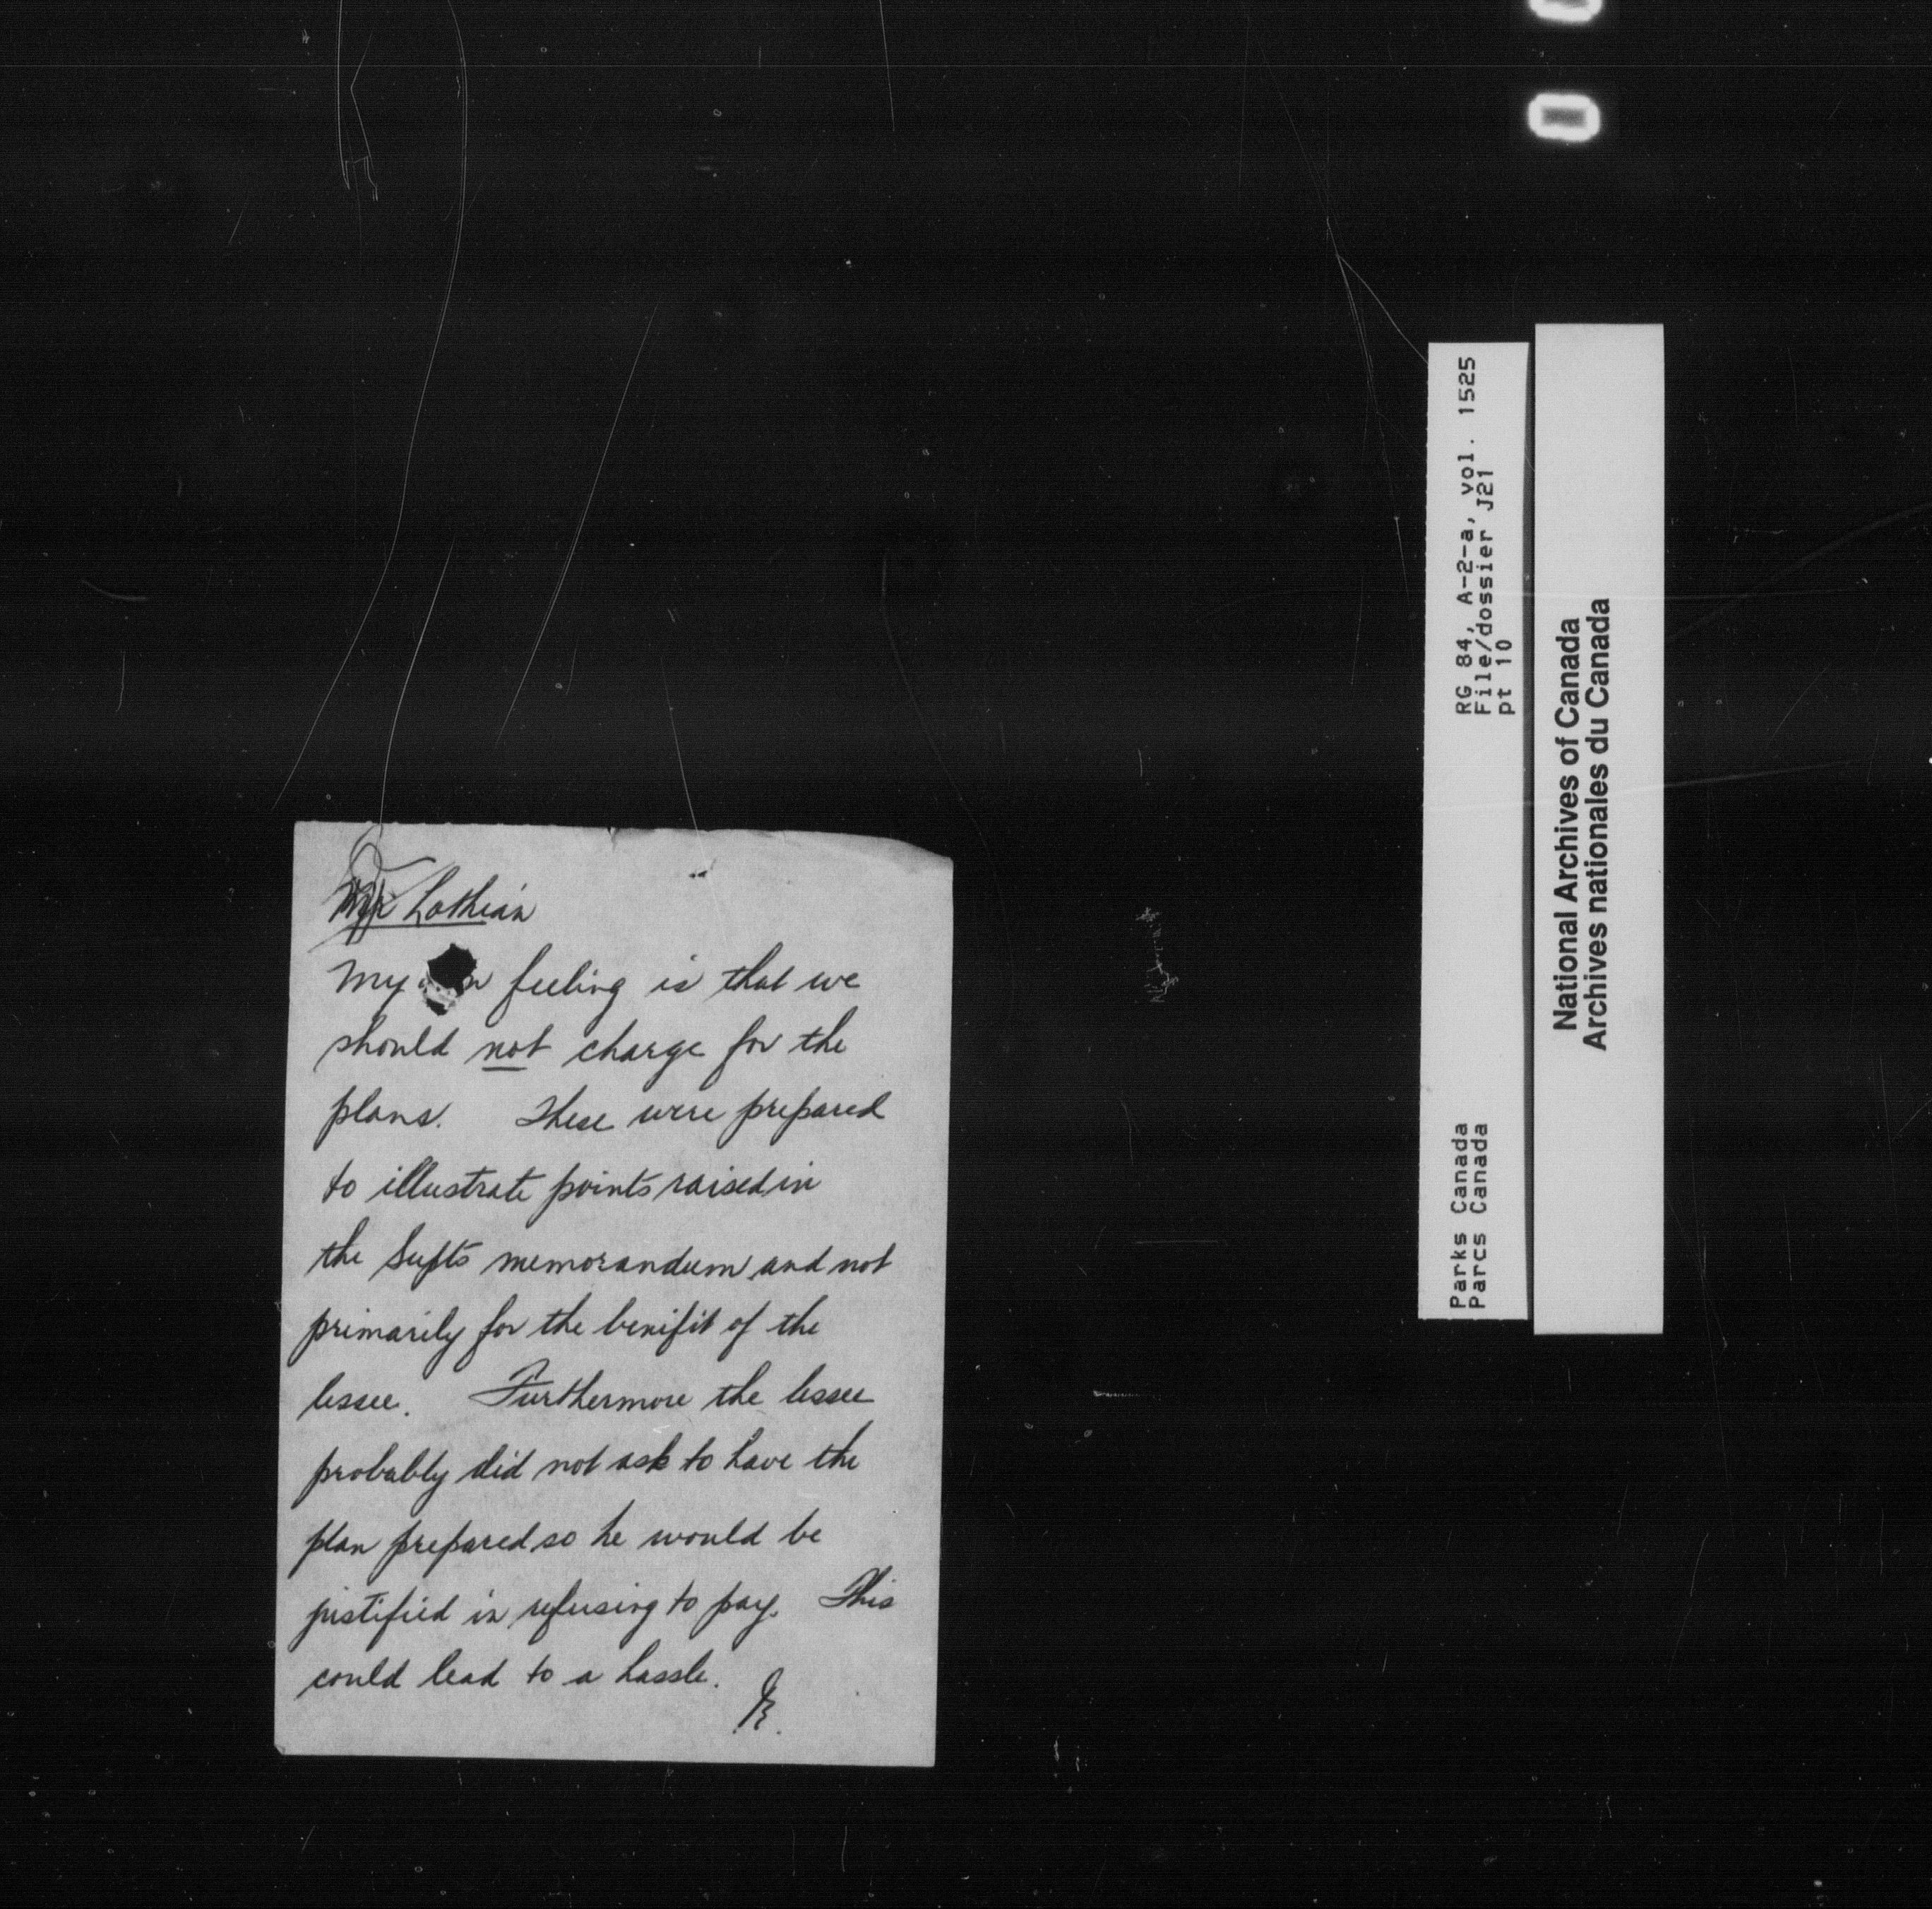 Mr Lothian
My feeling is that we
should not charge for the
plans. These were prepared
to illustrate points raised in
the Supts memorandum and not
primarily for the benifit of the
lessee. Furthermore the lessee
probably did not ask to have the
plan prepared so he would be
justified in refusing to pay. This
could lead to a hassle.
RG 84, A-2-a, vol. 1525
File/dossier J21
pt 10
Parks Canada
Parcs Canada
National Archives of Canada
Archives nationales du Canada